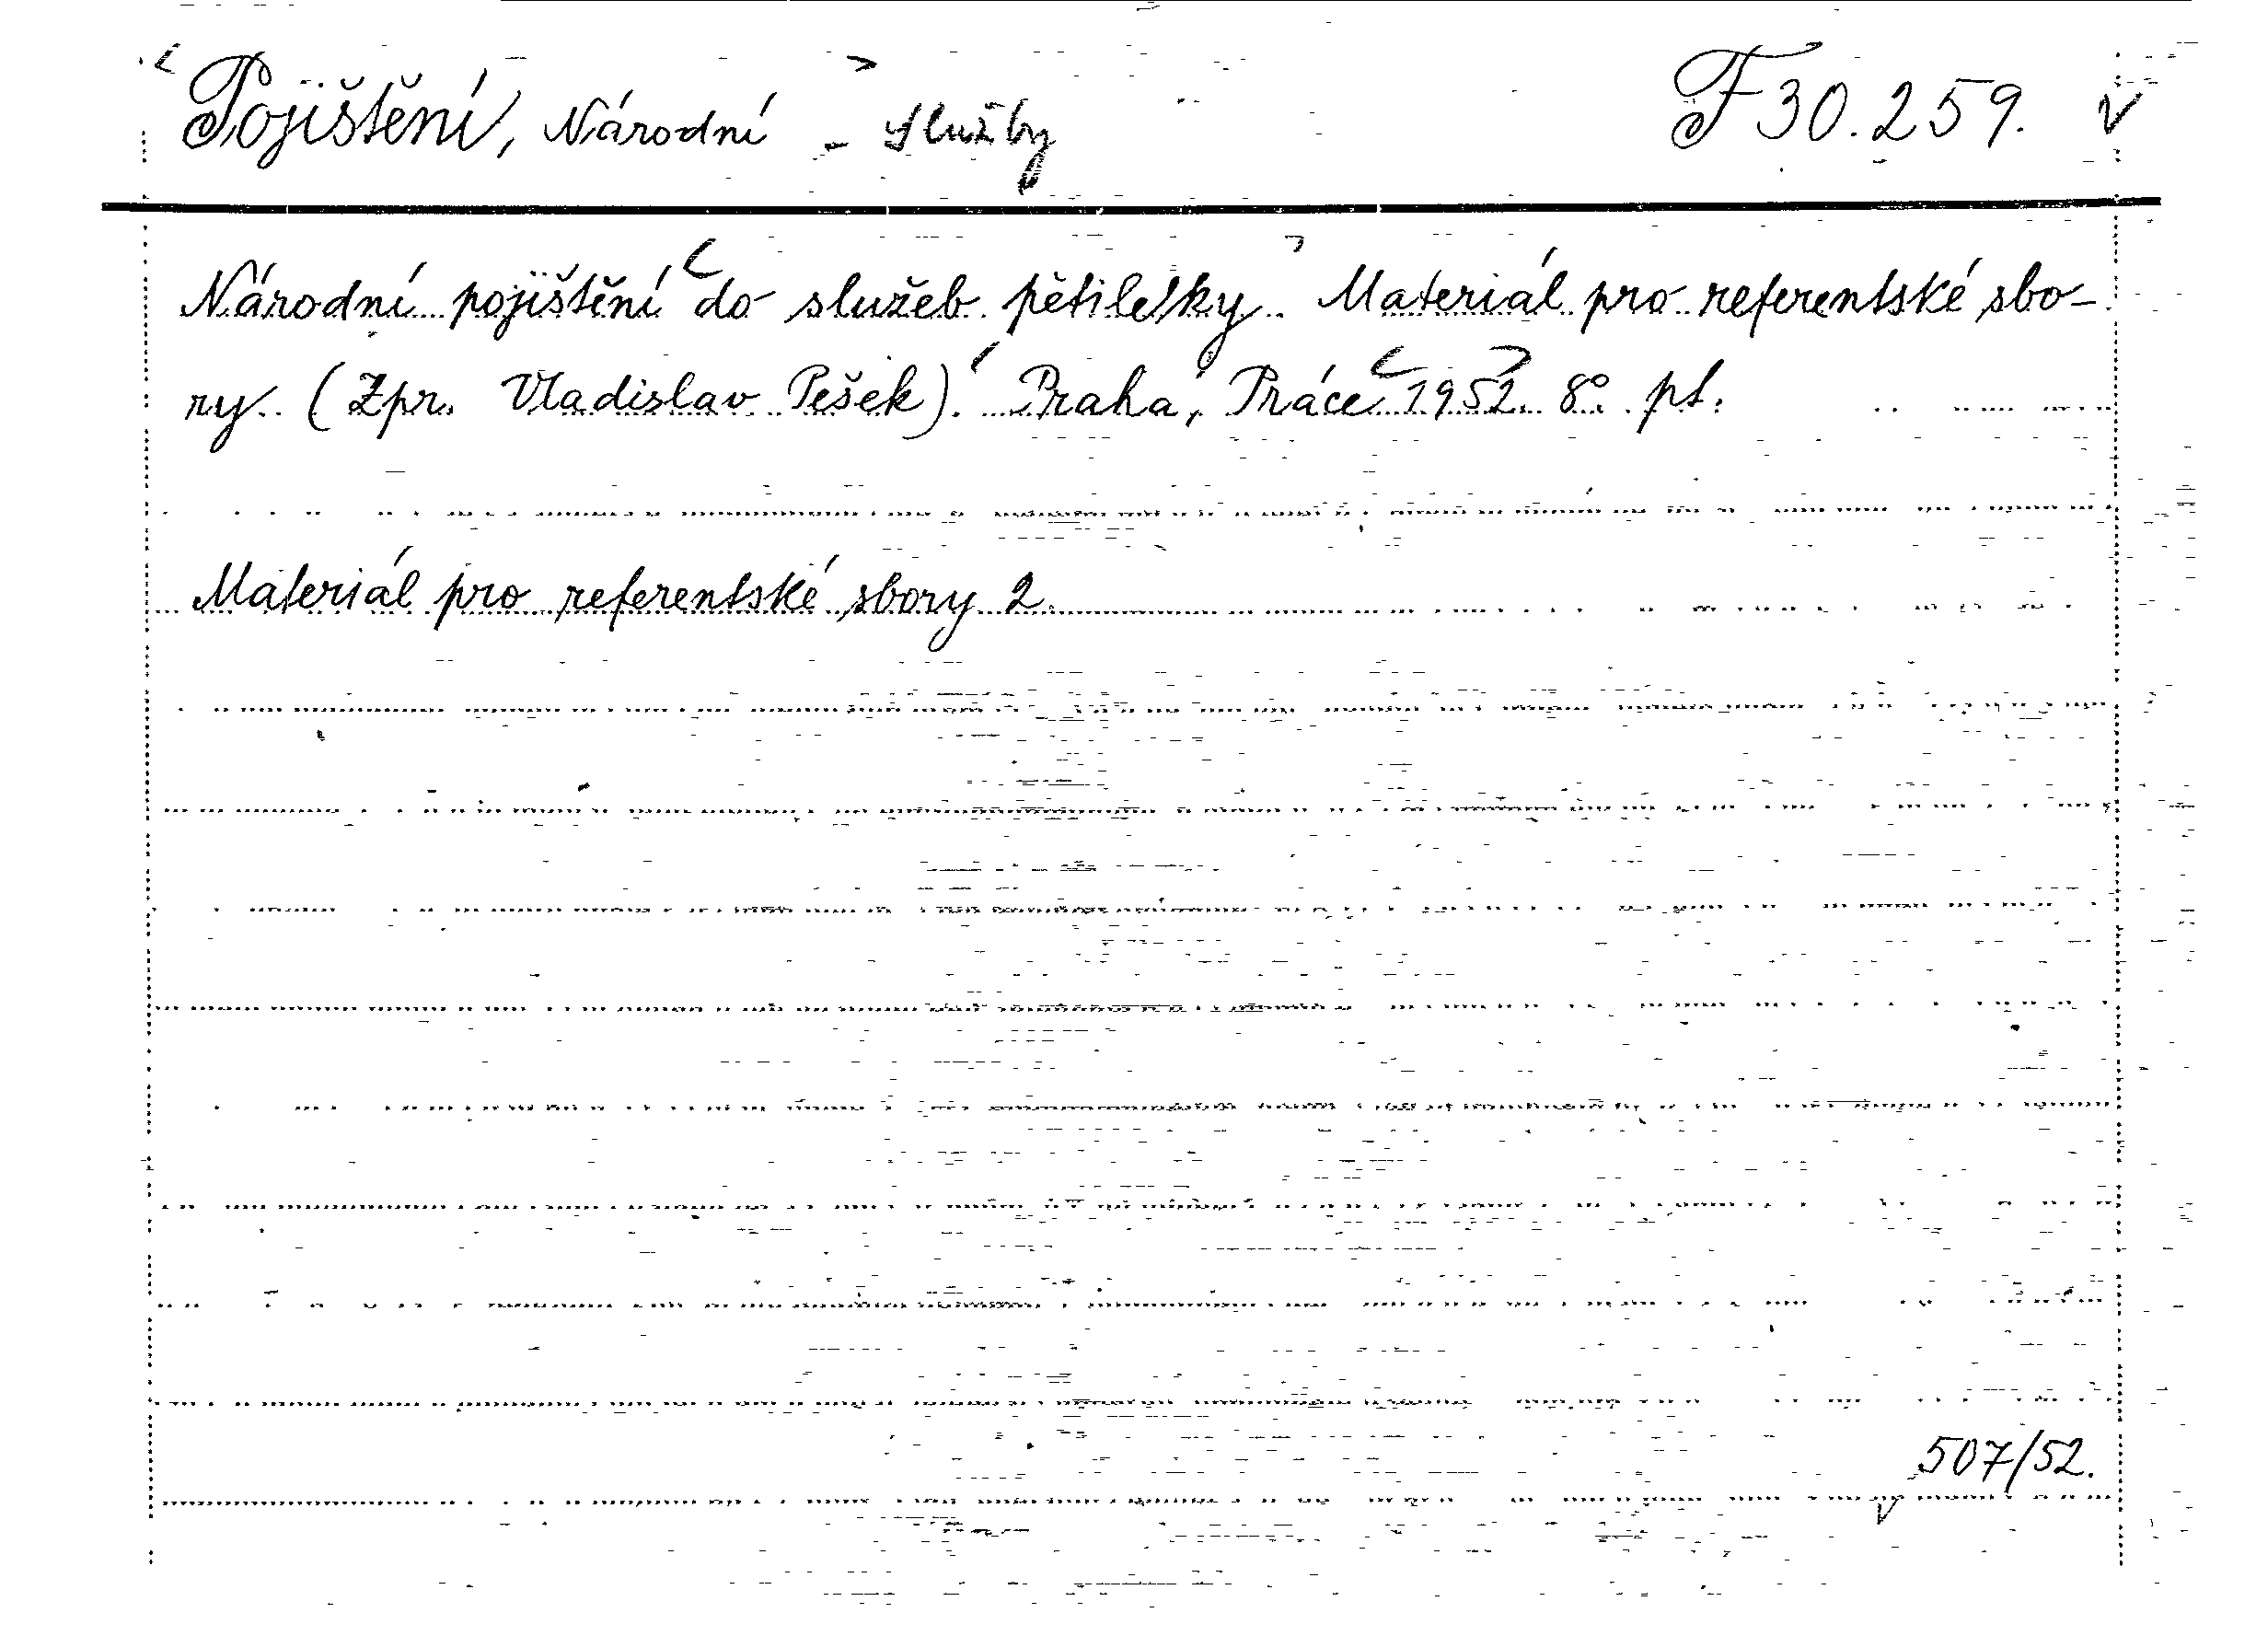 Pojištění, Národní - služby F 30.259.
Národní pojištění do služeb pětiletky. Materiál pro referentské sbo-
ry. (Zpr. Vladislav Pešek). Praha, Práce 1952. 8°. pt.
Materiál pro referentské sbory 2.
507/52.